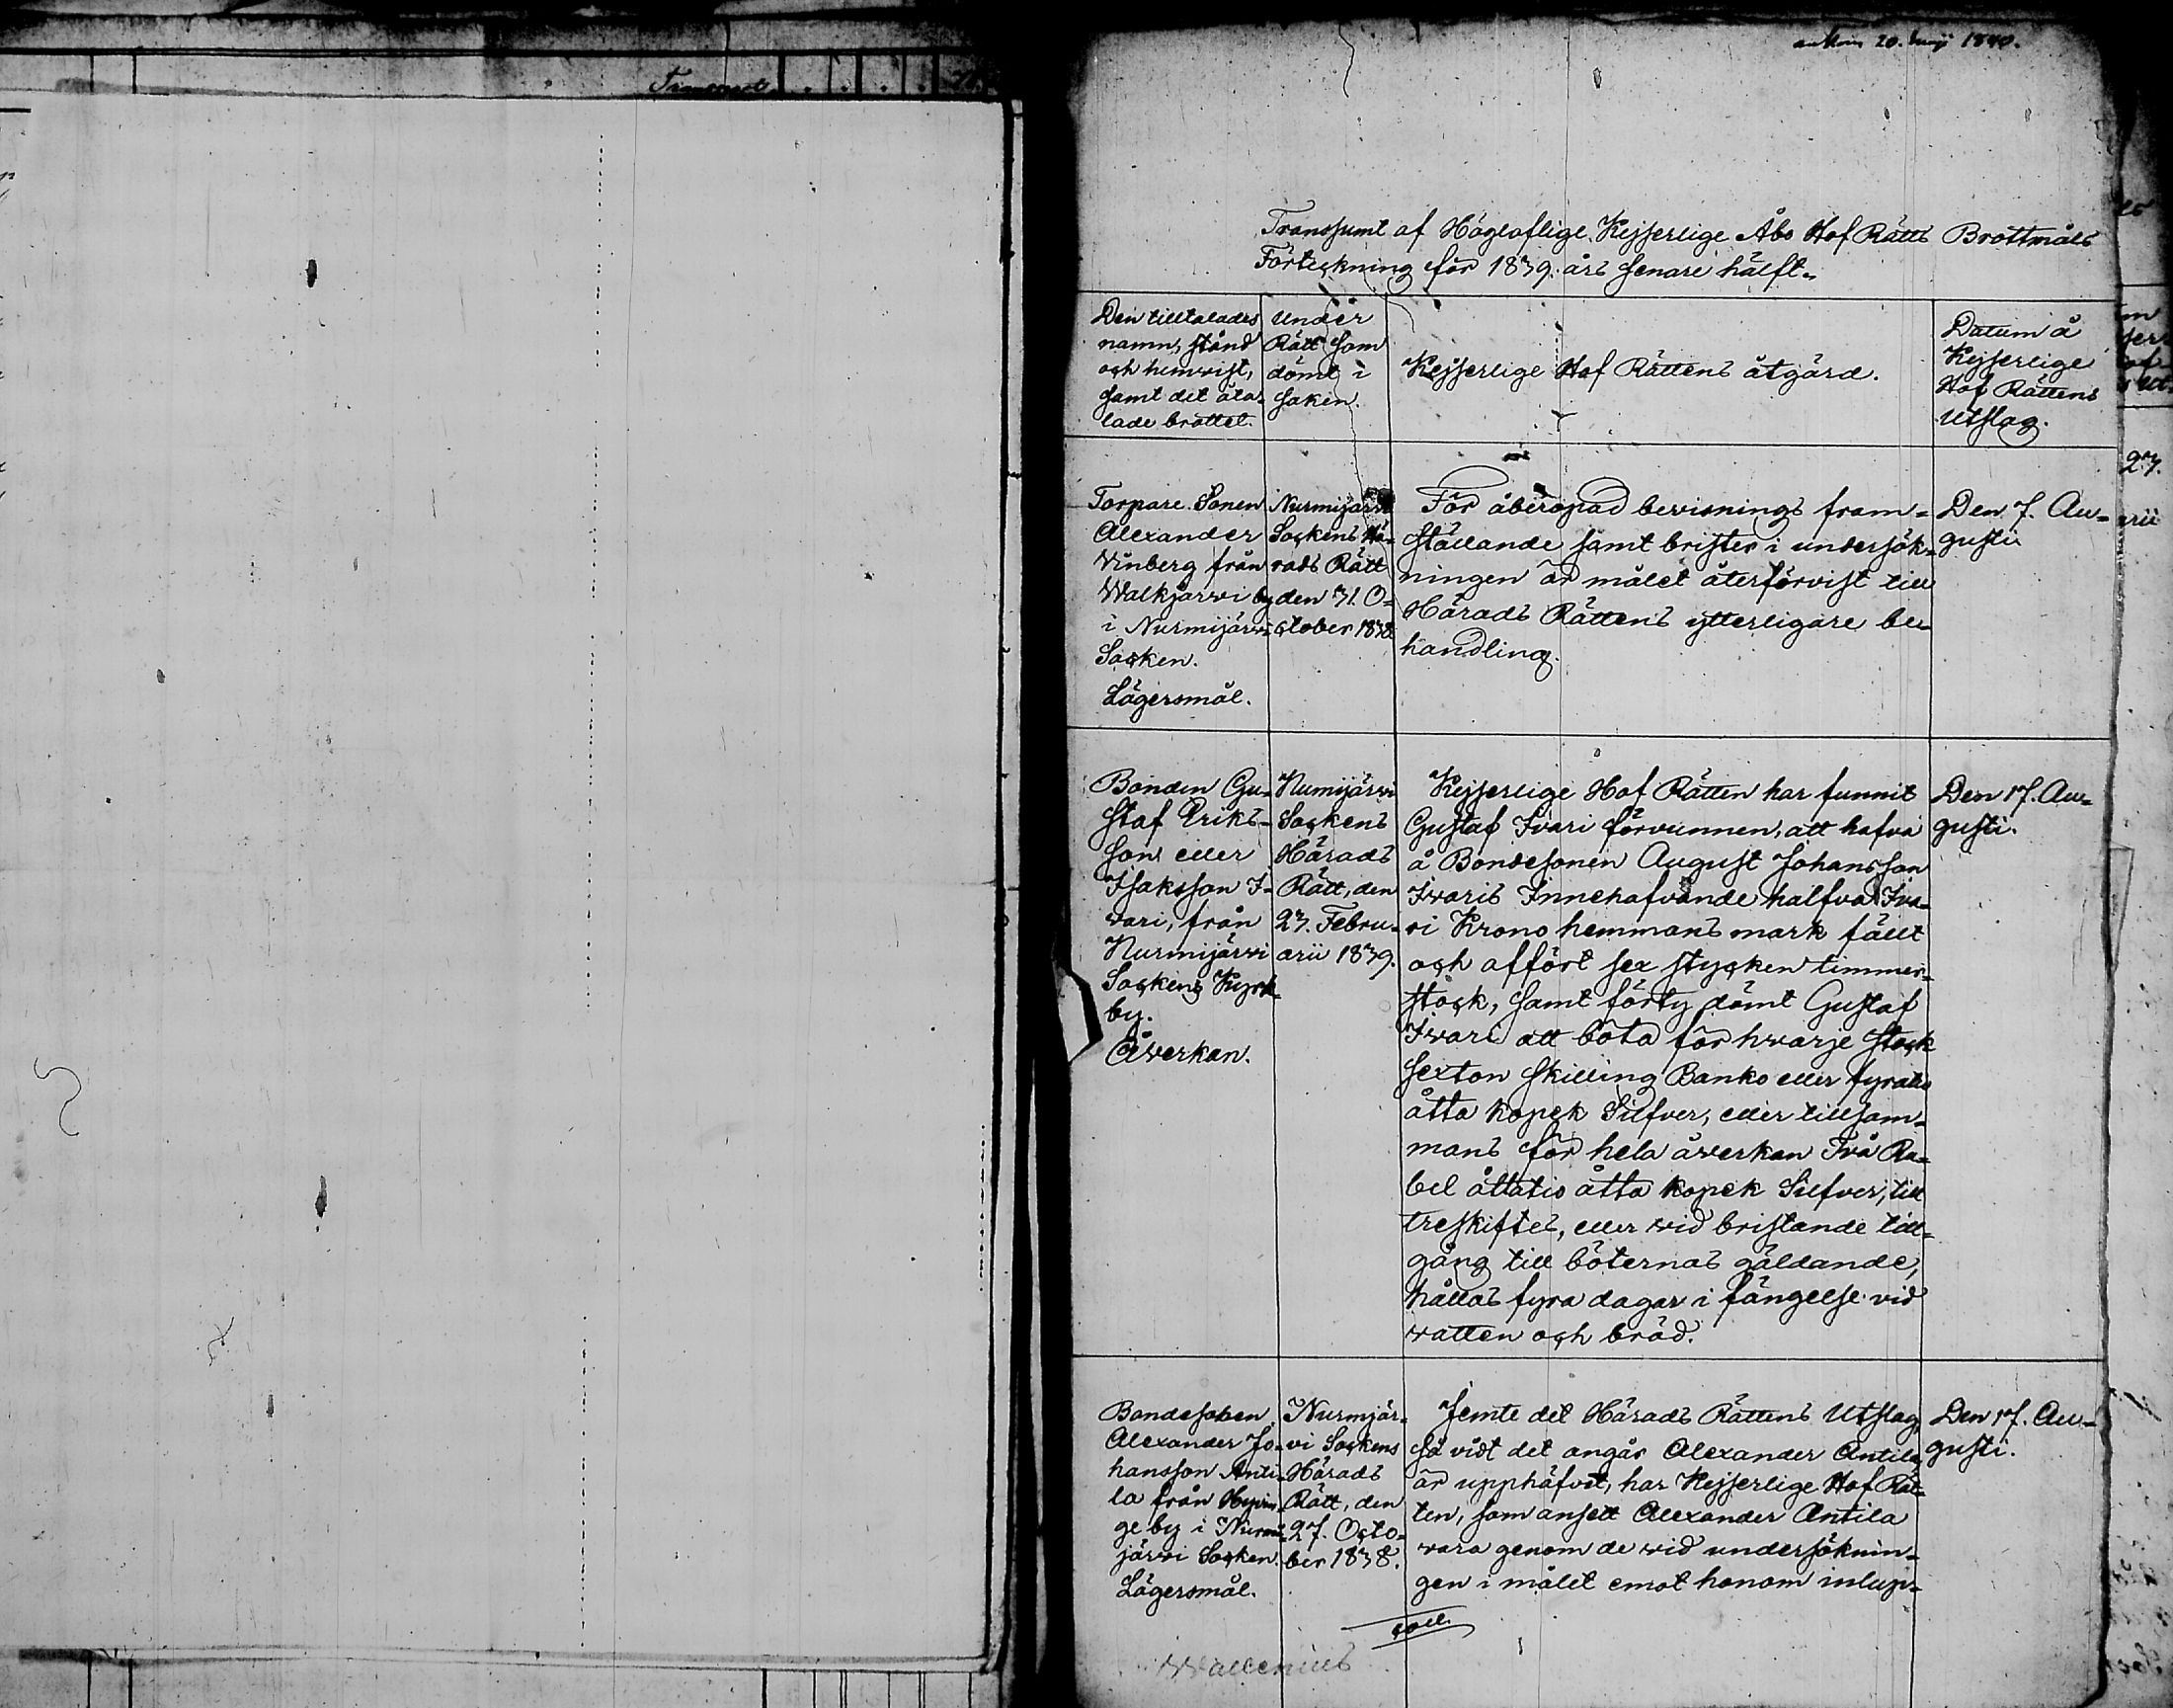 Transport
20. 1840.
Transsumt af Högloflige Kejserlige Åbo Hof Rätts Brottmåls
Förteckning för 1839. års senare hälft.
Den tilltalades
namn, stånd
och hemvist,
samt det åta-
lade brottet.
Under
Rätt som
dömt i
saken.
Kejserlige Hof Rättens åtgärd.
Datum å
Kejserlige
Hof Rättens
Utslag.
Torpare Sonen
Alexander
Vinberg från
Walkjärvi by
i Nurmijärvi
Socken.
Lägersmål.
Nurmijärvi
Sockens Hä-
rads Rätt
den 31. O-
ctober 1838.
För åberopad bevisnings fram-
ställande samt brister i undersök-
ningen är målet återförvist till
Härads Rättens ytterligare be-
handling.
Den 7. Au-
gusti
Bonden Gu-
staf Eriks-
son eller
Isaksson I-
vari, från
Nurmijärvi
Sockens Kyrk-
by.
Åverkan.
Numijärvi
Sockens
Härads
Rätt, den
27. Febru-
arii 1839.
Kejserlige Hof Rätten har funnit
Gustaf Ivari förvunnen, att hafva
å Bondesonen August Johansson
Ivaris Innehafvande halfva Iva-
ri Krono hemmans mark fällt
och affört sex stycken timmer-
stock, samt förty dömt Gustaf
Ivari att böta för hwarje stock
sexton skilling Banko eller fyratio
åtta kopek Silfver, eller tillsam-
mans för hela åverkan Två Ru-
bel åttatio åtta kopek Silfver, till
treskiftes, eller wid bristande till-
gång till böternas gäldande,
hållas fyra dagar i fängelse vid
watten och bröd.
Den 17. Au-
gusti.
Bondesonen
Alexander Jo-
hansson Anti-
la från Hyvin-
ge by i Nurmi-
järvi Socken.
Lägersmål.
Nurmjär-
vi Sockens
Härads
Rätt, den
27. Octo-
ber 1838.
Jemte det Härads Rättens Utslag,
så vidt det angår Alexander Antila,
är upphäfvet, har Kejserlige Hof Rät-
ten, som ansett Alexander Antila
wara genom de wid undersöknin-
gen i målet emot honom inlup-
Den 17. Au-
gusti.
coll.
Wallenius
27.